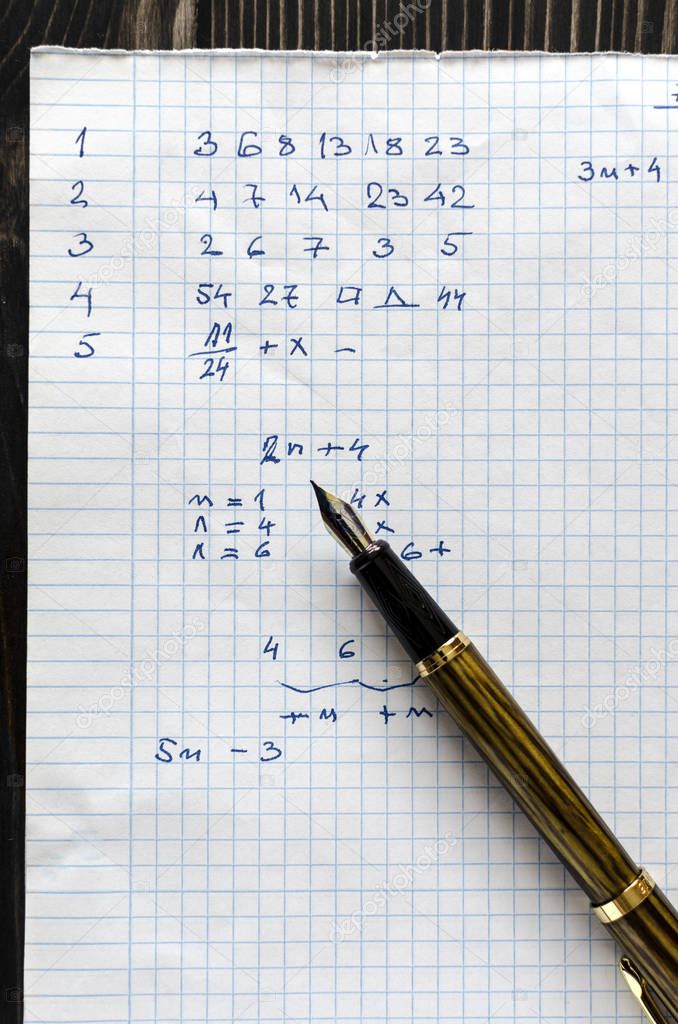 1 3 6 8 13 18 23
3n+4
2 4 7 14 23 42
3 2 6 7 3 5
4 54 27 □ △ 44
5 11/24 + x -
2n + 4
n = 1 4x
n = 4 x
n = 6 6+
4 6
+ n + n
5n - 3